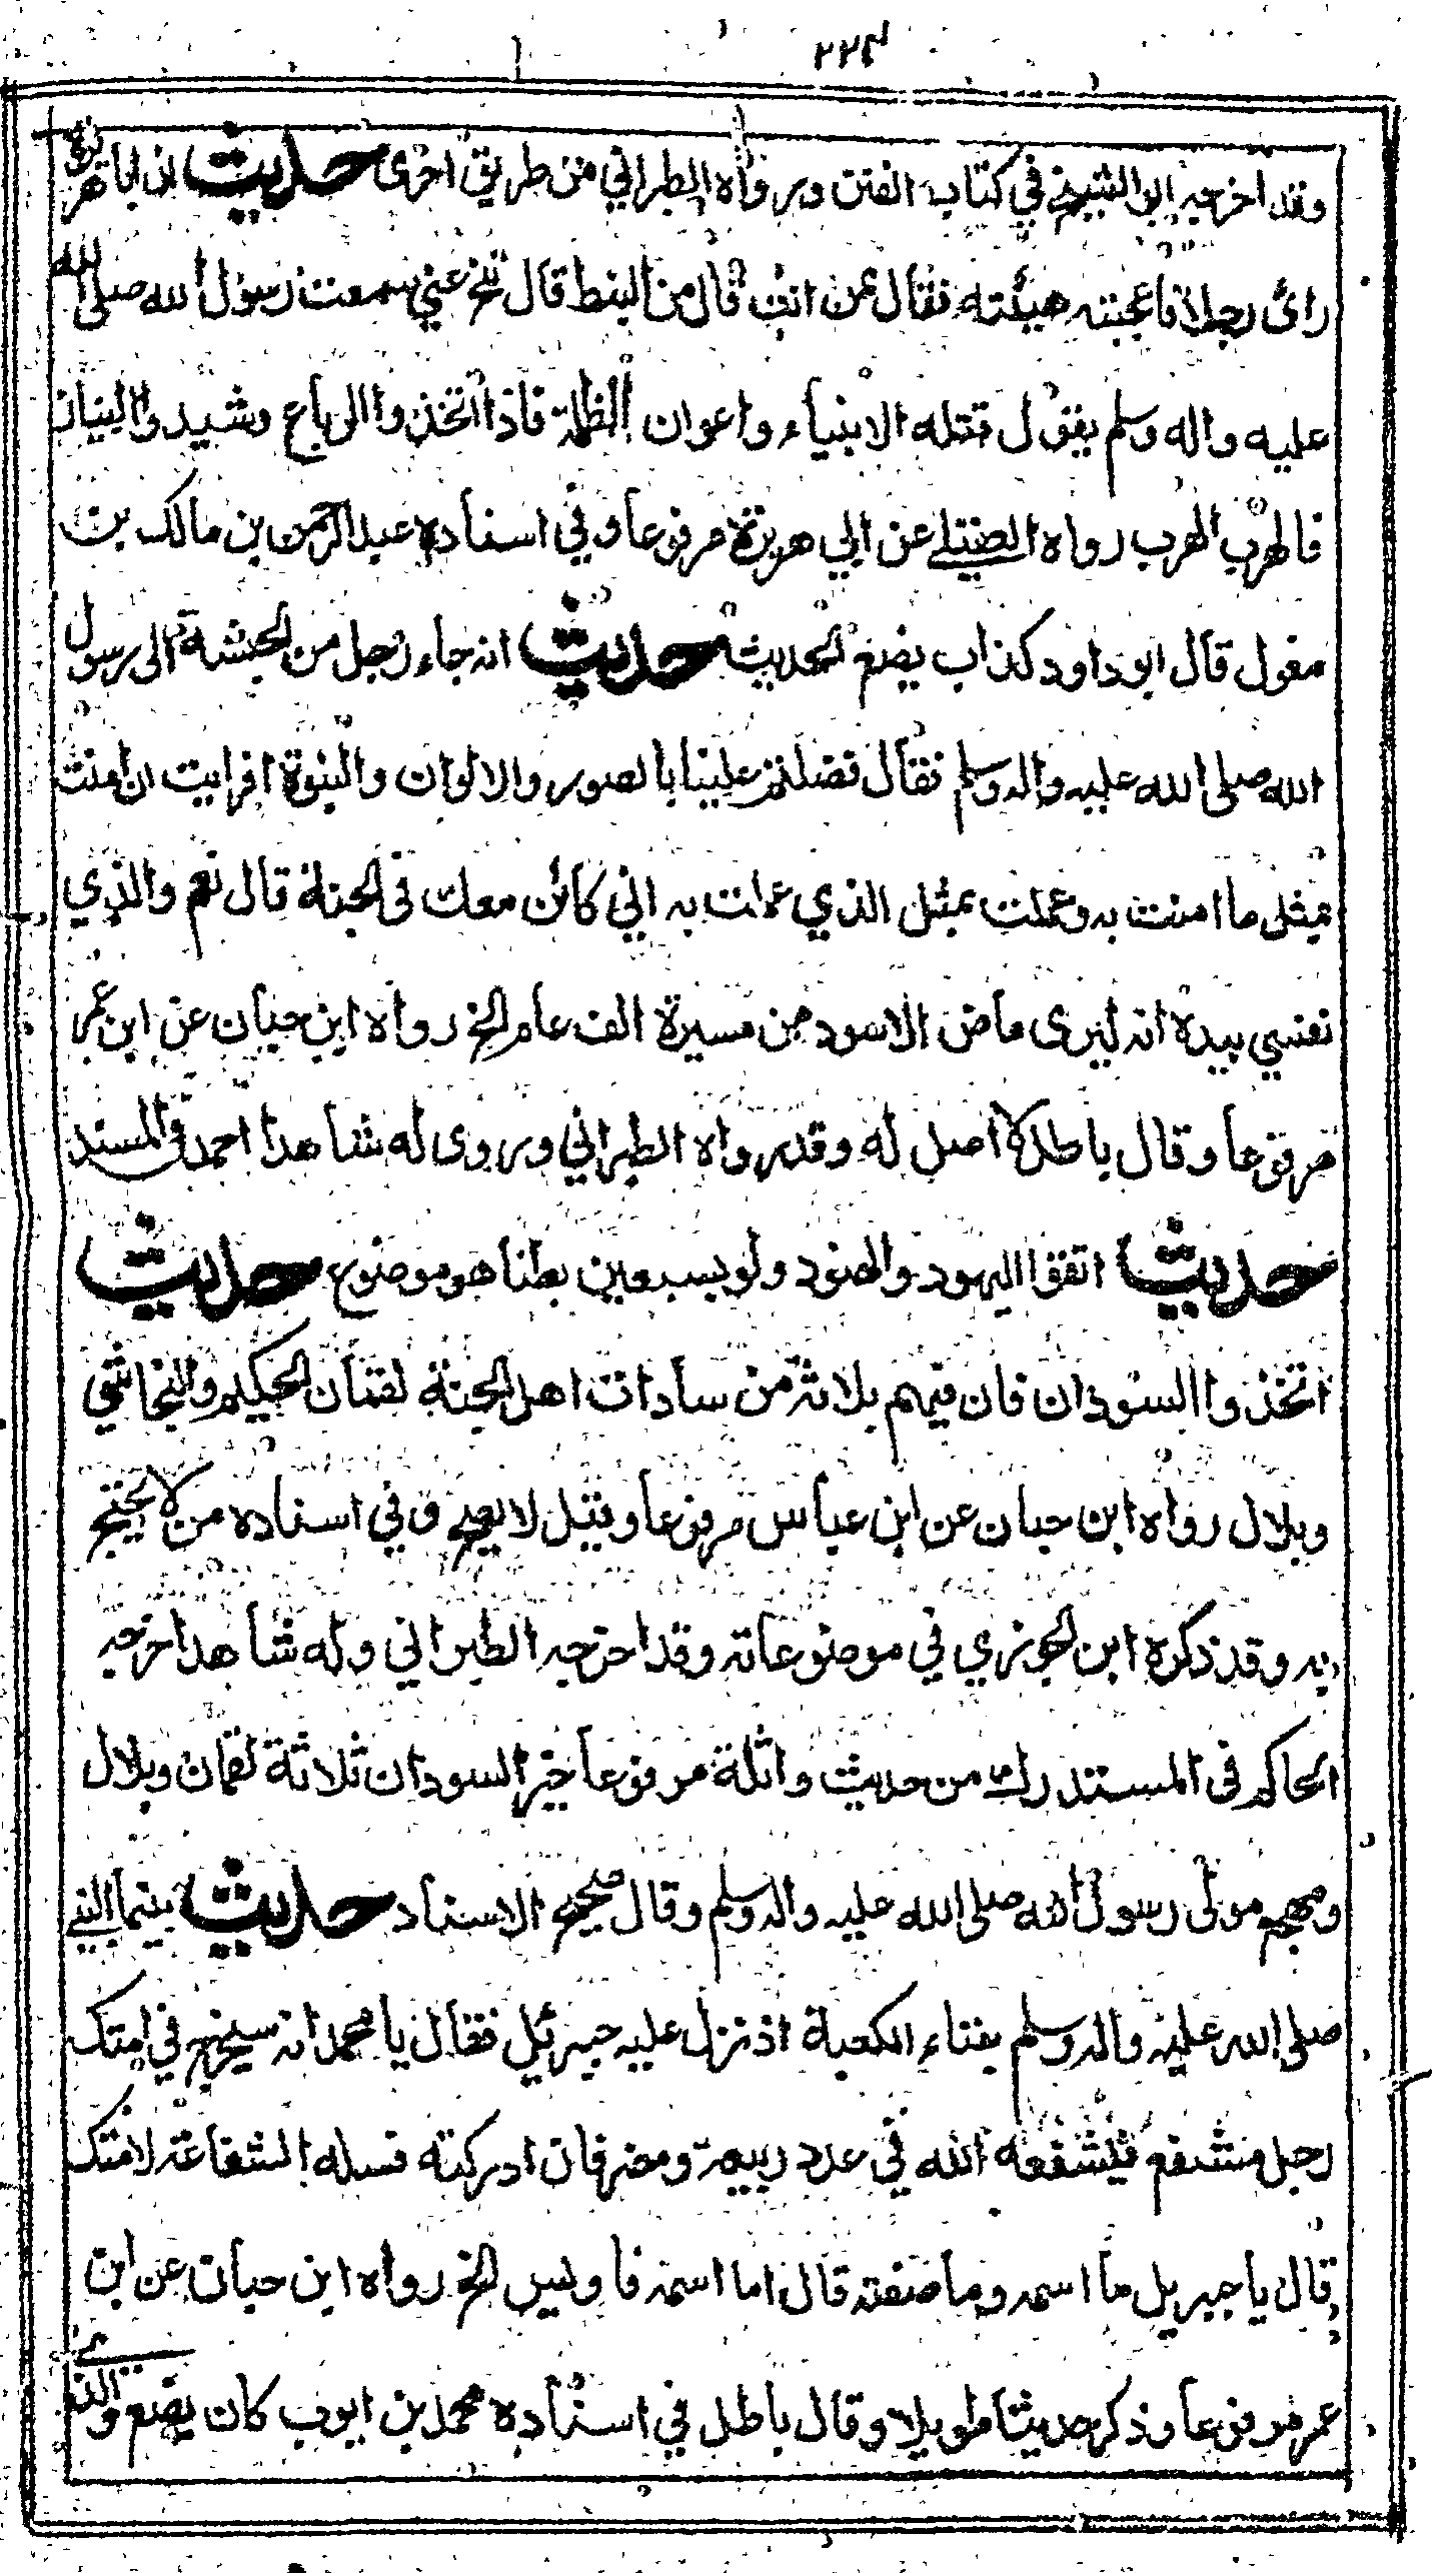 ٢٢٤
وقد اخرجه ابو الشيخ في كتاب الفتن ورواه الطبراني من طريق اخرى حديث ان ابا هريرة
رائ رجلا فاعجبته هيئته فقال ممن انت قال من النبط قال تنح عني سمعت رسول الله صلى الله
عليه واله وسلم يقول قتلة الانبياء واعوان الظلمة فاذا اتخذوا الرباع وشيدوا البنيان
فالهرب الهرب رواه العقيلي عن ابي هريرة مرفوعا وفي اسناده عبد الرحمن بن مالك بن
مغول قال ابو داود كذاب يضع الحديث حديث انه جاء رجل من الحبشة الى رسول
الله صلى الله عليه واله وسلم فقال فضلتم علينا بالصور والالوان والنبوة افرايت ان امنت
بمثل ما امنت به وعملت بمثل الذي عملت به اني كائن معك فى الجنة قال نعم والذي
نفسي بيده انه ليرى بياض الاسود من مسيرة الف عام الخ رواه ابن حبان عن ابن عمر
مرفوعا وقال باطل لا اصل له وقد رواه الطبراني وروى له شاهدا احمد فى المسند
حديث اتقوا اليهود والهنود ولو بسبعين بطنا هو موضوع حديث
اتخذوا السودان فان فيهم ثلاثة من سادات اهل الجنة لقمان الحكيم والنجاشي
وبلال رواه ابن حبان عن ابن عباس مرفوعا وقيل لا يصح وفي اسناده من لا يحتج
به وقد ذكره ابن الجوزي في موضوعاته وقد اخرجه الطبراني وله شاهد اخرجه
الحاكم فى المستدرك من حديث واثلة مرفوعا خير السودان ثلاثة لقمان وبلال
ومهجع مولى رسول الله صلى الله عليه واله وسلم وقال صحيح الاسناد حديث بينما النبي
صلى الله عليه واله وسلم بفناء الكعبة اذ نزل عليه جبرئيل فقال يا محمد انه سيخرج في امتك
رجل مشفع فيشفعه الله في عدد ربيعة ومضر فان ادركته فسله الشفاعة لامتك
قال يا جبريل ما اسمه وما صفته قال اما اسمه فاويس الخ رواه ابن حبان عن ابن
عمر مرفوعا وذكر حديثا طويلا وقال باطل في اسناده محمد بن ايوب كان يضع